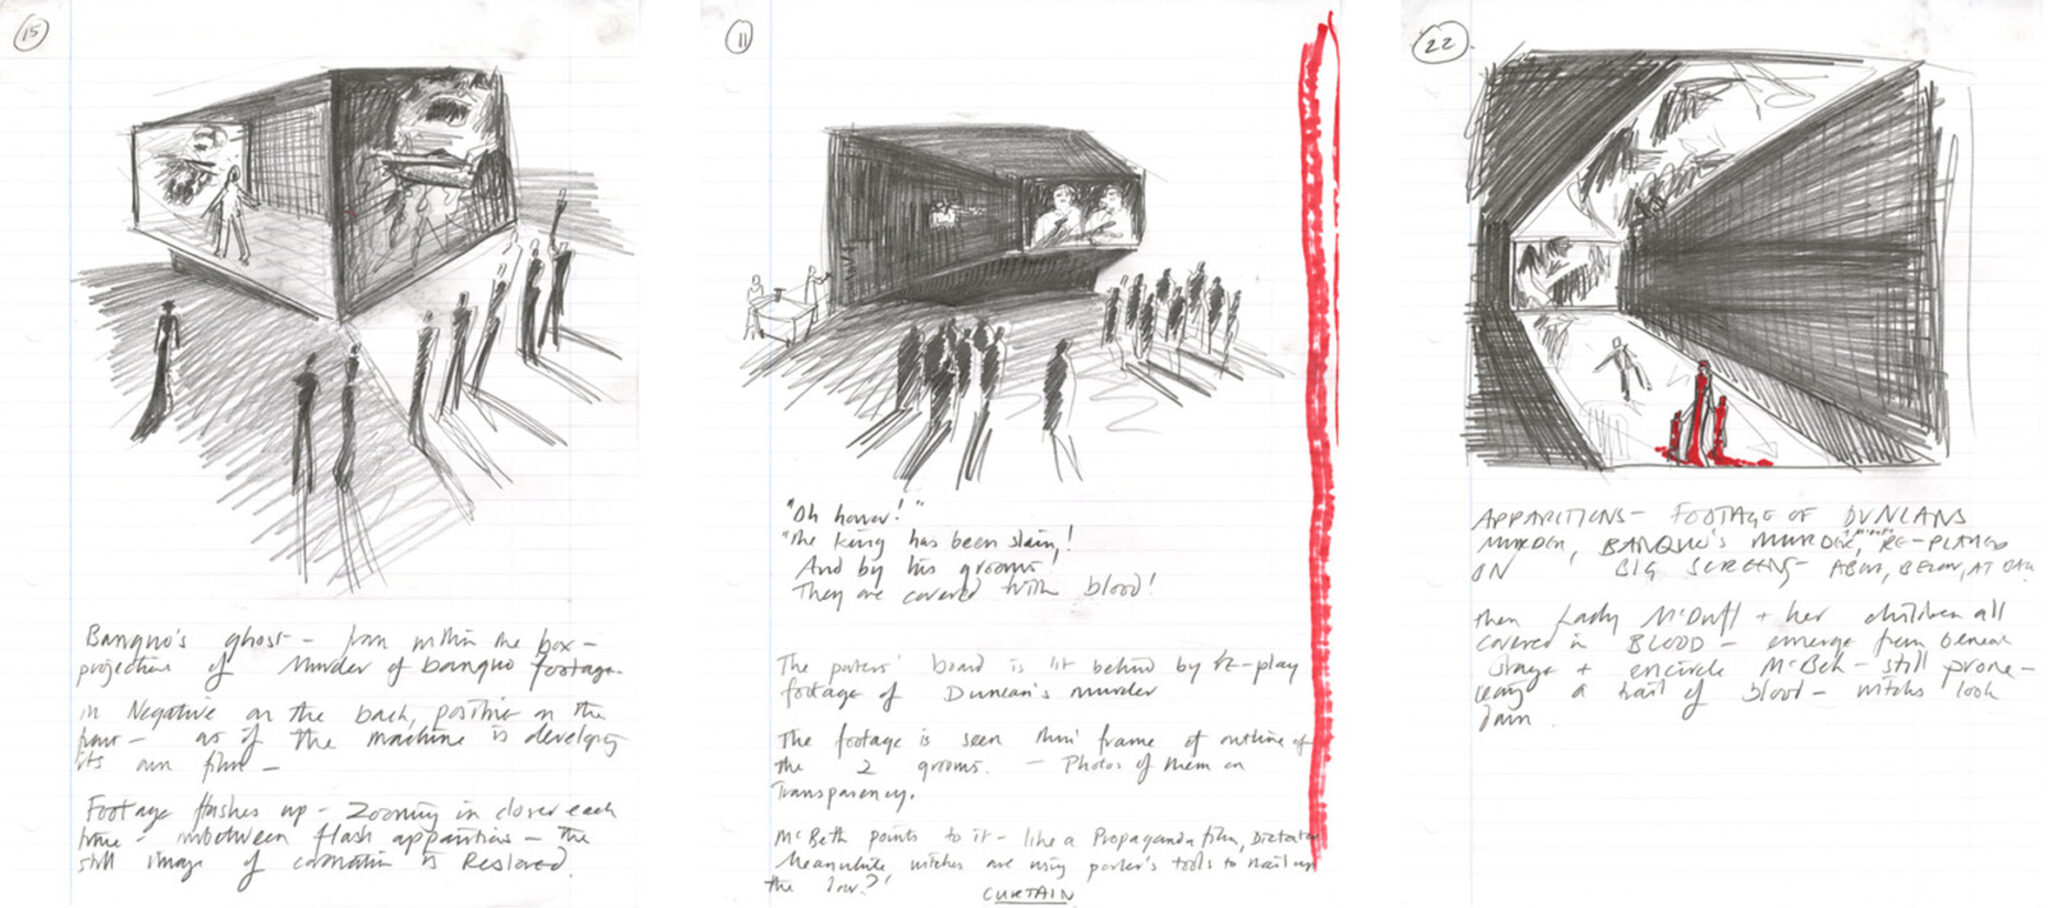 15
Banquo's ghost - from within the box -
projection of Murder of banquo footage.
in Negative on the back, positive on the
front - as if the machine is developing
its own film -
Footage flashes up - Zooming in closer each
time - inbetween flash apparitions - the
still image of coronation is Restored.
11
"Oh horror!"
"The king has been slain,!
And by his grooms!
They are covered with blood!
The porters' board is lit behind by re-play
footage of Duncan's murder
The footage is seen thru' frame of outline of
the 2 grooms. - Photos of them on
Transparency.
McBeth points to it - like a Propaganda film, Dictator
Meanwhile, witches are using porter's tools to nail up
the
CURTAIN
22
APPARITIONS - FOOTAGE OF DUNCANS
MURDER, BANQUO'S MURDER, RE-PLAYED
ON BIG SCREENS - ABOVE, BELOW, AT BACK
then Lady McDuff + her children all
covered in BLOOD - emerge from beneath
stage + encircle McBeth - still prone -
a trail of blood - witches look